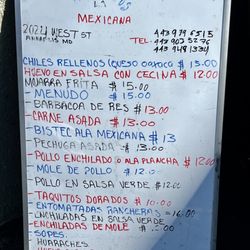 MEXICANA
2022 WEST ST
ANNAPOLIS MD
TEL
CHILES RELLENOS (QUESO OAXACO $ 15.00
HUEVO EN SALSA CON CECINA $ 12.00
MOJARRA FRITA $ 15.00
- MENUDO $ 15.00
- BARBACOA DE RES $ 13.00
- CARNE ASADA $ 13.00
- BISTEC ALA MEXICANA $ 13
- PECHUGA ASADA $ 13.00
- POLLO ENCHILADO O ALA PLANCHA $ 12.00
- MOLE DE POLLO $ 12.00
- POLLO EN SALSA VERDE $ 12.00
- TAQUITOS DORADOS $ 10.00
- ENTOMATADAS RANCHERAS = 16.00
- ENCHILADAS EN SALSA VERDE
- ENCHILADAS DE MOLE
- SOPES.
- HUARACHES